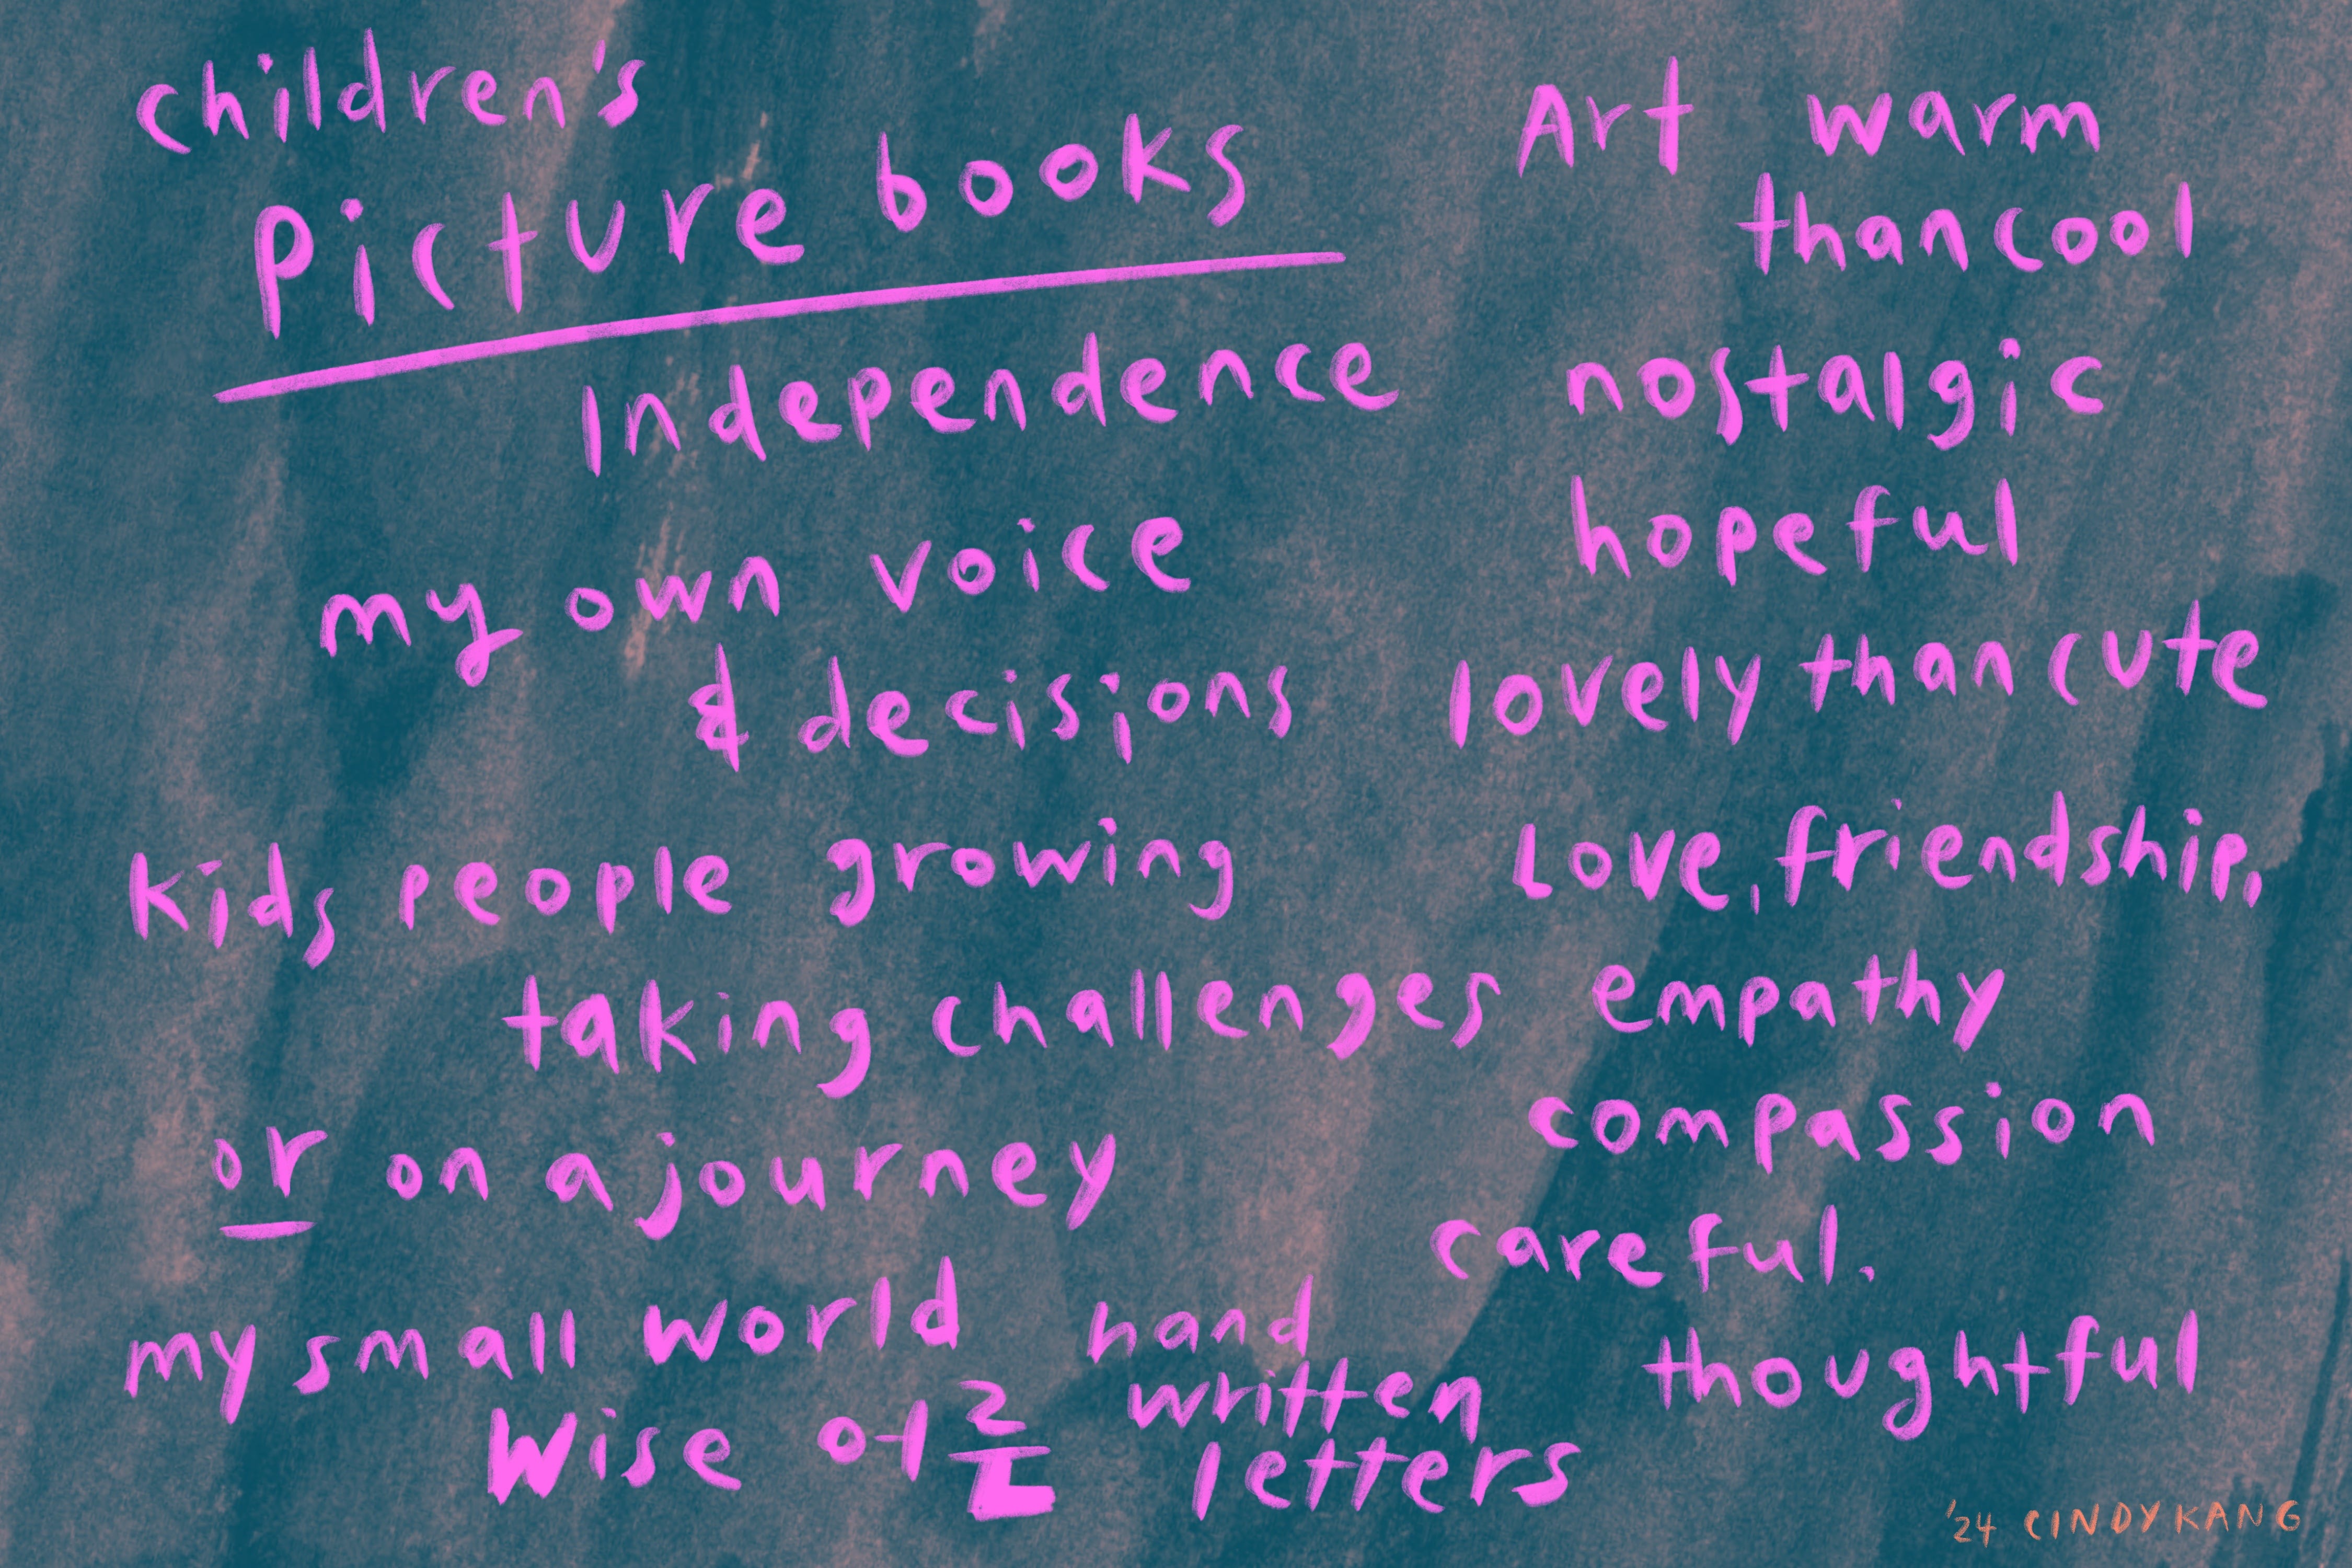 children's
Picture books
Independence
my own voice
& decisions
kids people growing
taking challenges
or on a journey
my small world
Wise of
hand
written
letters
Art warm
than cool
nostalgic
hopeful
lovely than cute
Love, friendship,
empathy
compassion
careful.
thoughtful
'24 CINDY KANG